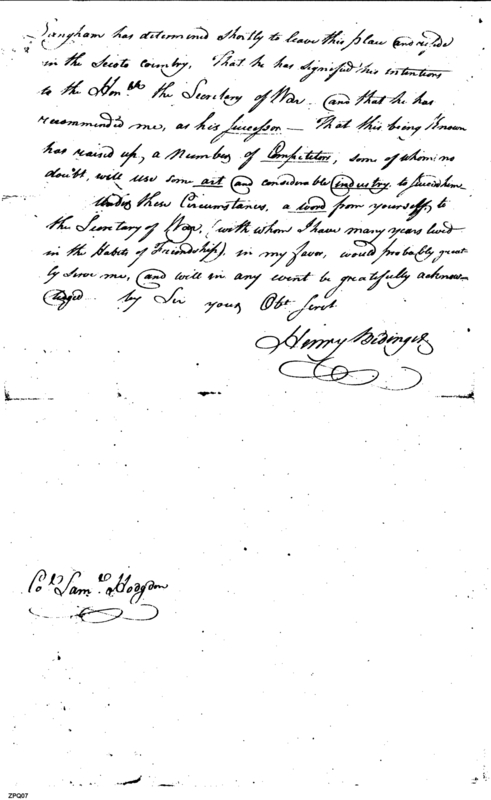 Dingham has determined Shortly to leave this place and reside
in the Scoto Country. That he has signified his intentions
to the Hon.ble the Secretary of War and that he has
recommended me, as his Successor — That this being Known
has raised up, a Number of Competitors, some of whom no
doubt, will use some art and considerable industry to succeed me
Under these Circumstances, a word from yourself, to
the Secretary of War, (with whom I have many years lived
in the Habits of Friendship) in my favor, would probably great-
ly serve me, and will in any event be gratefully acknow-
ledged by Sir your Obt Servt
Henry Bedinger
Col.o Sam.l Hodgdon
ZPQ07